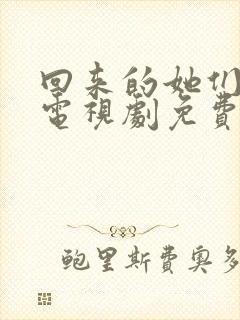 回来的她们
電視劇免費
鲍里斯費奥多